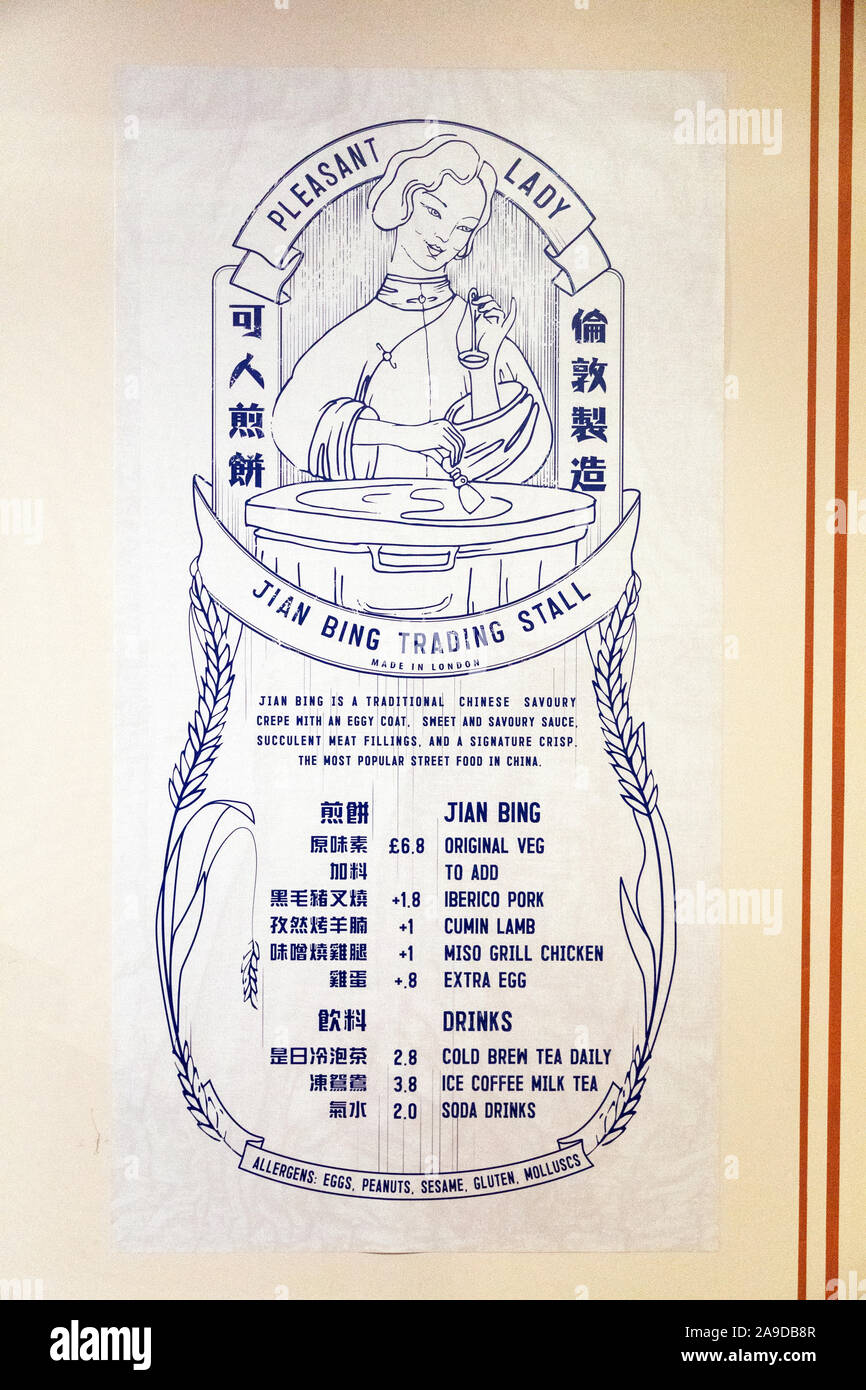 PLEASANT LADY
可人煎餅
倫敦製造
JIAN BING TRADING STALL
MADE IN LONDON
JIAN BING IS A TRADITIONAL CHINESE SAVOURY
CREPE WITH AN EGGY COAT, SWEET AND SAVOURY SAUCE,
SUCCULENT MEAT FILLINGS, AND A SIGNATURE CRISP.
THE MOST POPULAR STREET FOOD IN CHINA.
煎餅 JIAN BING
原味素 £6.8 ORIGINAL VEG
加料 TO ADD
黑毛豬叉燒 +1.8 IBERICO PORK
孜然烤羊腩 +1 CUMIN LAMB
味噌燒雞腿 +1 MISO GRILL CHICKEN
雞蛋 +.8 EXTRA EGG
飲料 DRINKS
是日冷泡茶 2.8 COLD BREW TEA DAILY
凍鴛鴦 3.8 ICE COFFEE MILK TEA
氣水 2.0 SODA DRINKS
ALLERGENS: EGGS, PEANUTS, SESAME, GLUTEN, MOLLUSCS
alamy
Image ID: 2A9DB8R
www.alamy.com